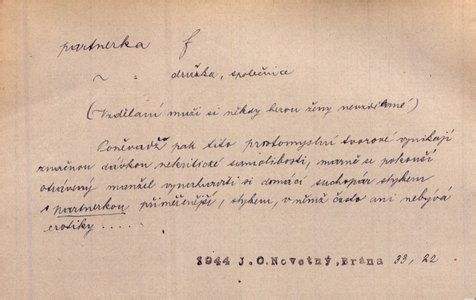 partnerka f
~ " družka, společnice
(Vzdělaní muži si někdy berou ženy nevzdělané)
Poněvadž pak tito prostomyslní tvorové vynikají
značnou dávkou nekritické samolibosti, marně se pokouší
otrávený manžel vynahraditi si domácí suchopár stykem
s partnerkou přiměřenější, stykem, v němž často ani nebývá
erotiky .....
1944 J.O.Novotný, Brána 33, 22